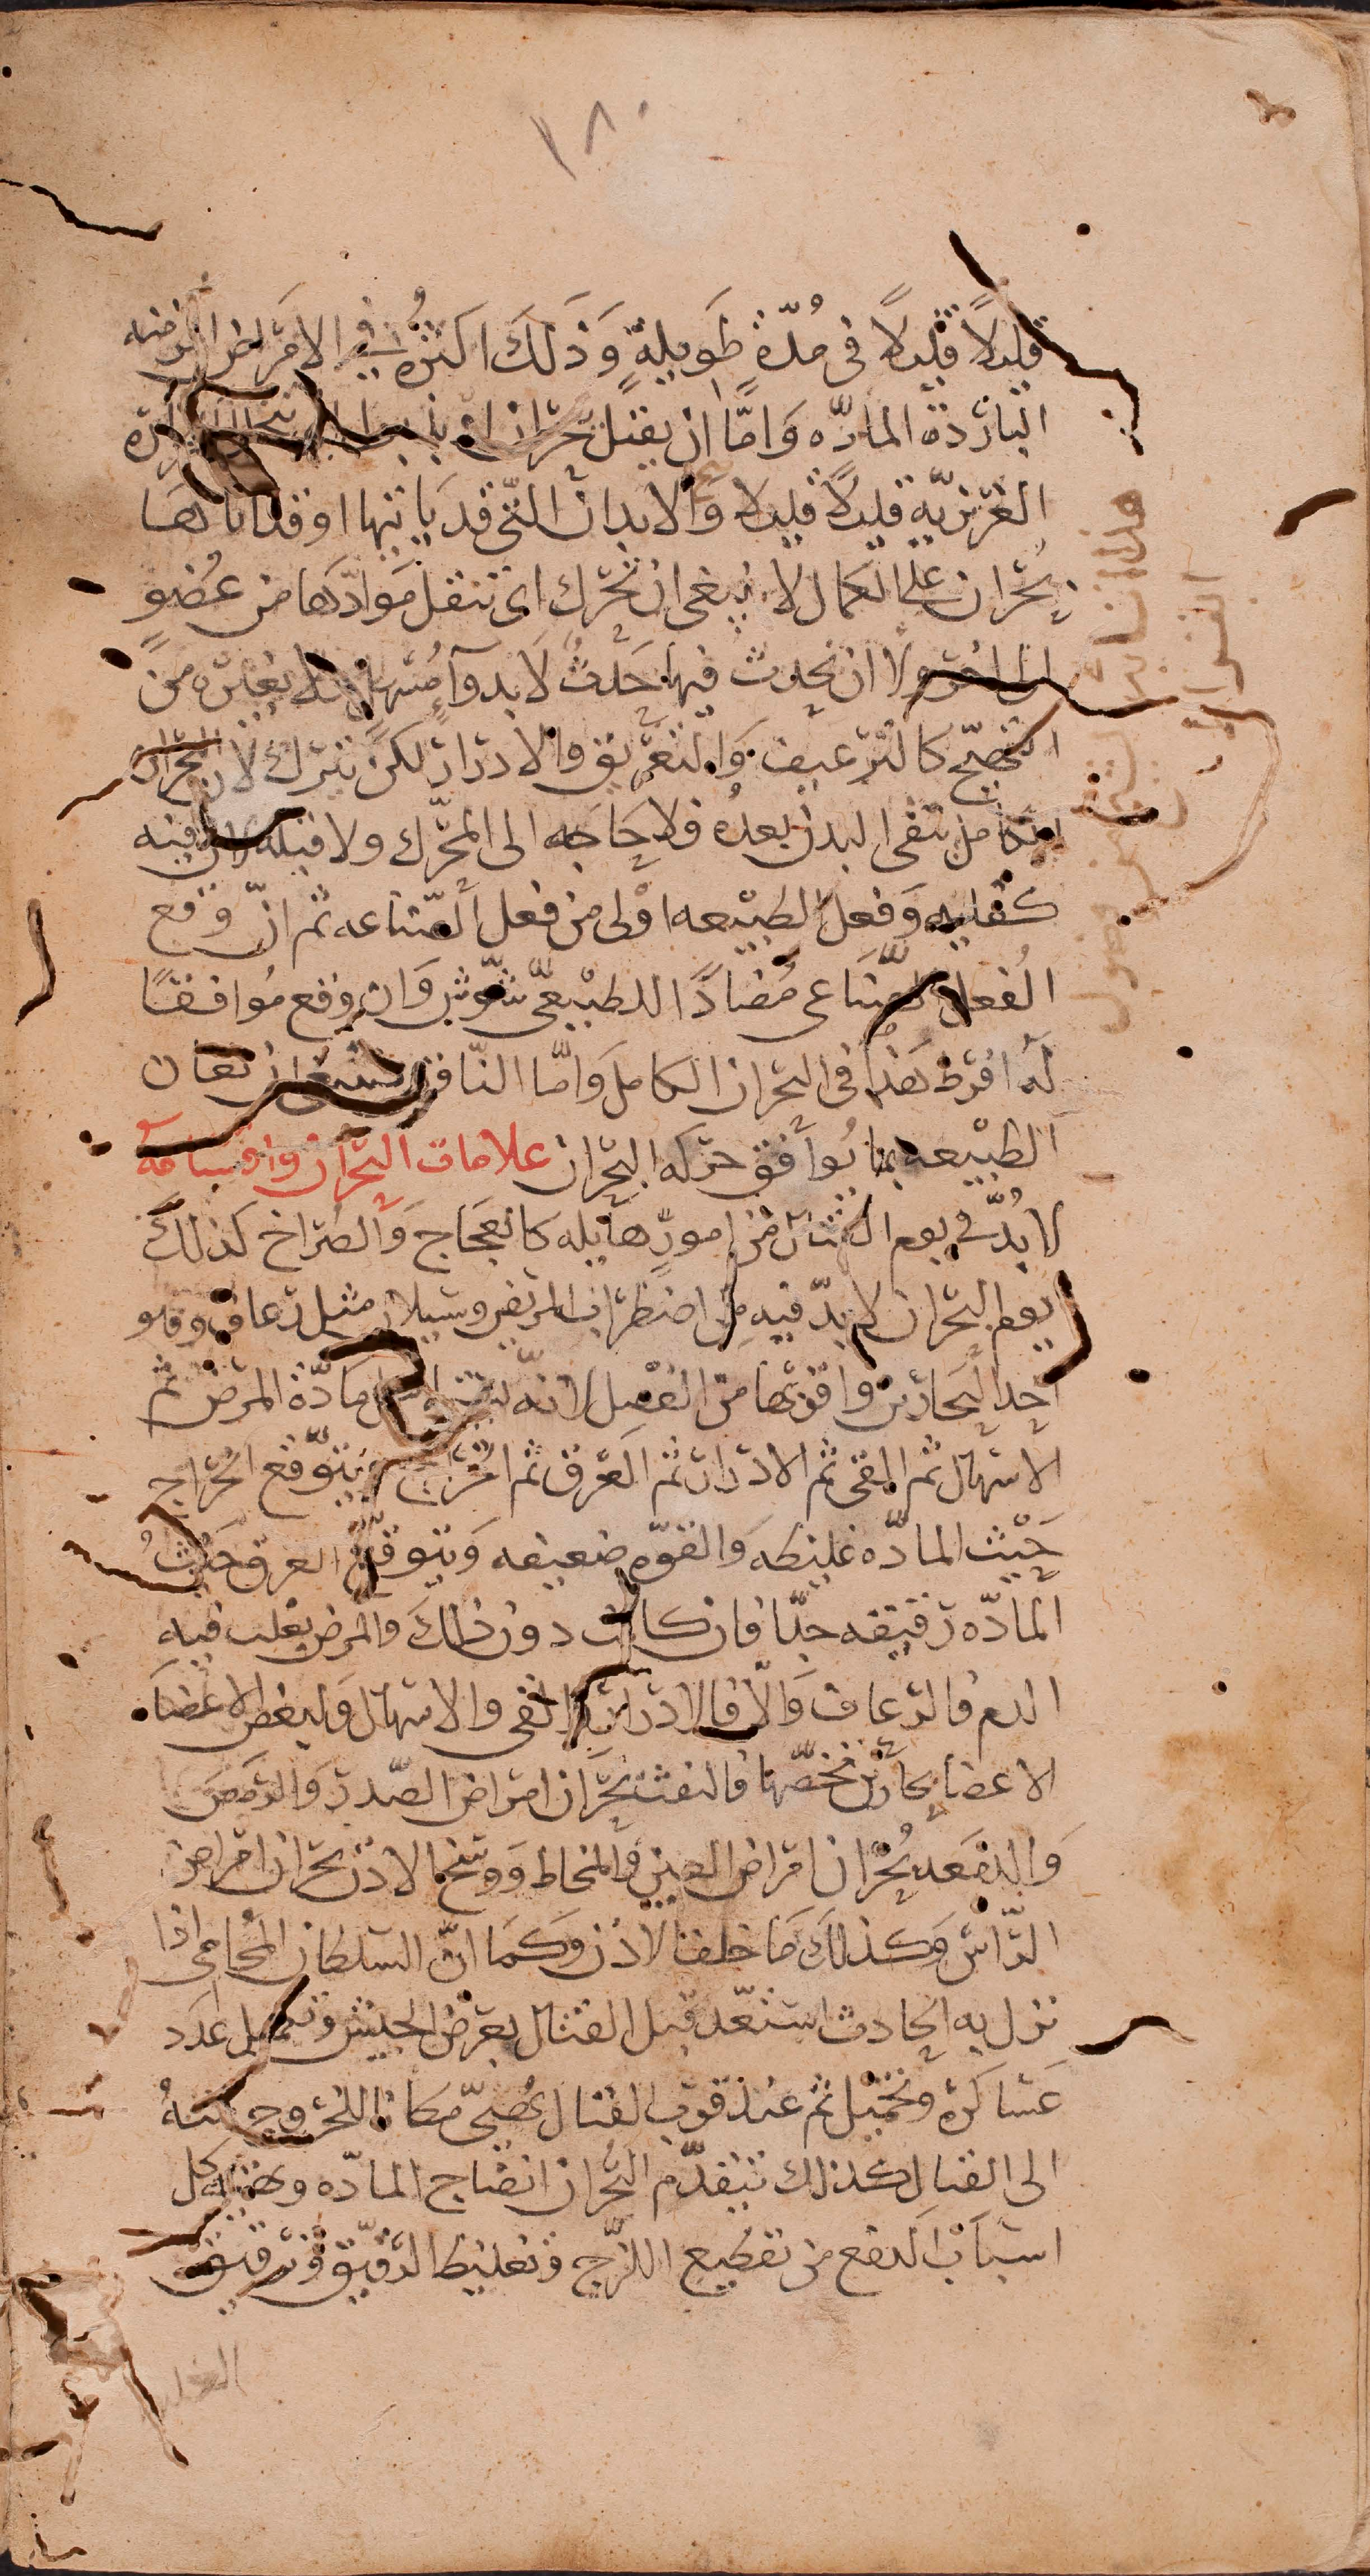 ١٨٠
قليلاً قليلاً فى مُدّة طَويلةٍ وَذلكَ اكثرُه فى الامَراض المزمنه
البارْدة المادّه وَامّا ان يقتل بحْران
الغرْيزيّه قليلاً قليلا وَالابدان التّى قد يَاتيها او قد اتاهَا
بحُران على الكمال لا ينبغى ان تحَرّك اى تنقل مَوادّهَا من عُضوٍ
الى اخر ولا ان يحدث فيها حَدثٌ لا بدوآءٍ مُسْهلٍ ولا بغيره من
التهيّج كالترْعيف وَالتعرْيق والادرار لكن تترك لان البحران
الكامل ينقى البدن بعدُه فلا حَاجَه الى المحَرّك ولا قبله لان فيه
كفايه وَفعل الطبيْعه اوْلى من فعل الصّناعه ثم انْ وَقع
الفعل الصّناعى مُضادًا للطبيْعىّ شَوّش وَان وقع مُوافقًا
لَه افرط هَذا فى البحران الكامل وَامّا النّاقص فينبغى ان تعان
الطبيْعه بما يُوافق حرَكه البحْران علامات البحْران واقسامه
لا بُدّ فى يوم القتال من امورٍ هَايله كالعَجَاج وَالصرَاخ كذلكَ
يوم البحْران لا بدّ فيه من اضطراب المريض وسَيلان مثل رعاف وهو
احد البحَارْين واقوىها من الفصل لانه مادّة المرَض ثم
الاسْهال ثم القى ثم الادرَار ثم العَرق ثم الخرَاج ويتوَقع الخرَاج
حَيْث المادّه غليظه وَالقوّه ضعيفه وَيتوقّع العرق حَيثُ
المادّه رْقيقه جدّا فان كانت دون ذلكَ والمرض يغلب فيه
الدم فالرعاف وَالّا فالادرار او القى والاسْهال وَلبعض الاعضَا
الاعضا بحَارْين تخصّها فالنفث بحَرَان امرَاض الصّدر وَالرمَصَ
وَالدمَعه بحُرْان امْراض العين والمخاط وَوسَخ الاذن بحران امْراض
الرّاسْ وَكذلكَ مَا خلف الاذن وَكمَا انّ السلطان المُحَامى اذا
نزل به الحَادث استعّد قبل القتال بعرْض الجيش وَتكميل عدَد
عَسَاكرَه وَتحميْل ثم عند قوّة القتال يُهيّى مَكانا للخرُوج منهُ
الى القتال كذلكَ يتقدّم البحُران انضَاج المادّه وَتهيئه كل
اسبَابْ الدفع من تقطيع اللزَج وَتغليظ الرقيق وَترقيق